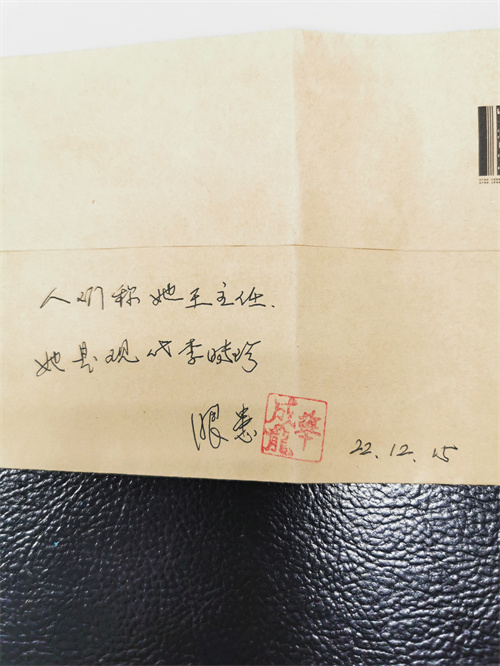 人们称她王主任.
她是现代李时珍
華成龍
22.12.15